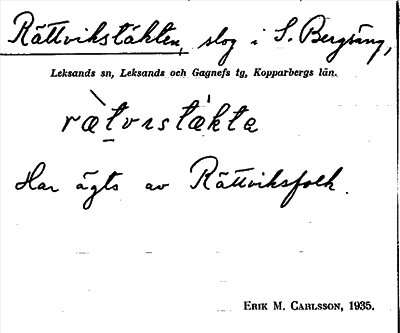 Rättvikstäkten, slog i S. Bergsäng,
Leksands sn, Leksands och Gagnefs tg, Kopparbergs län.
ræ̀tvɪstækta
Har ägts av Rättviksfolk.
ERIK M. CARLSSON, 1935.